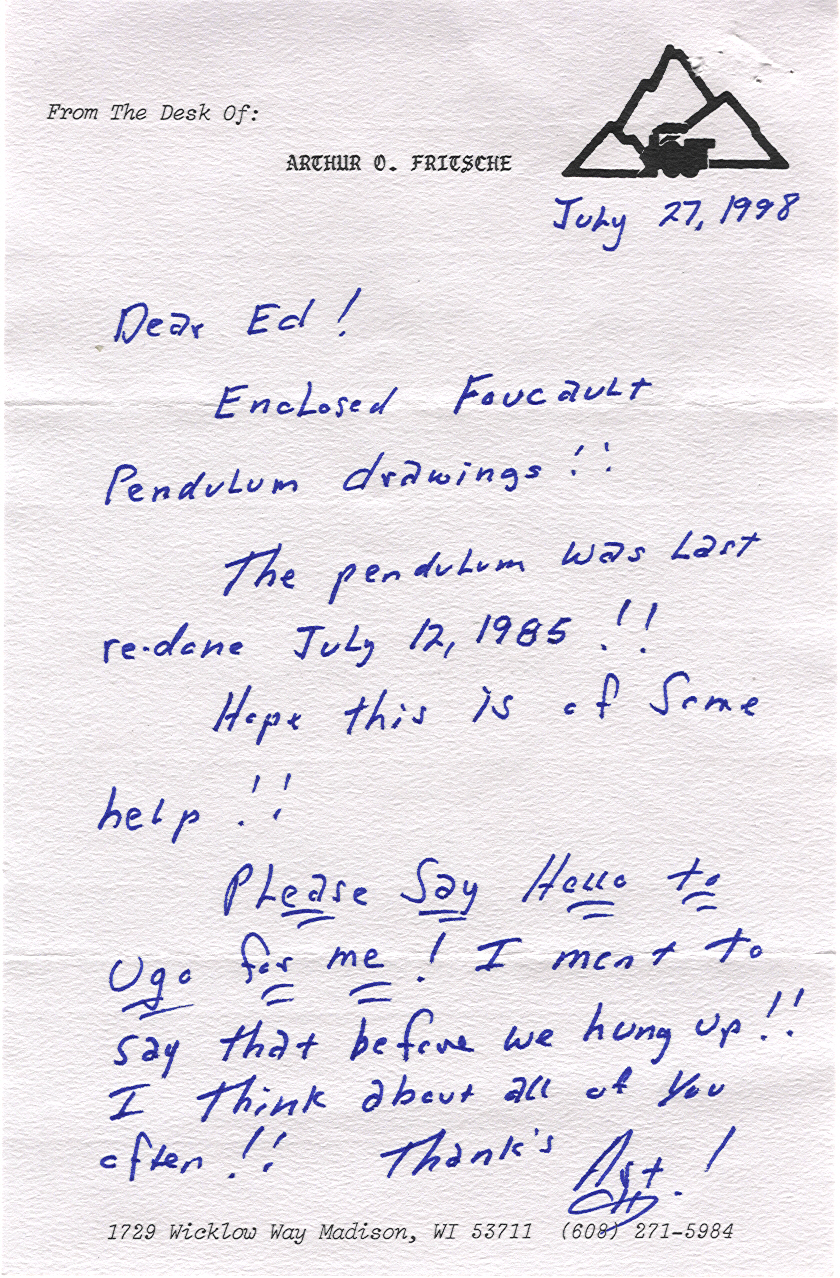 From The Desk Of:
ARTHUR O. FRITSCHE
July 27, 1998
Dear Ed!
Enclosed Foucault
Pendulum drawings!!
The pendulum was Last
re-done July 12, 1985!!
Hope this is of Some
help!!
PLease Say Hello to
Ugo for me! I ment to
say that before we hung up!!
I think about all of You
often!! Thank's Art!
1729 Wicklow Way Madison, WI 53711 (608) 271-5984